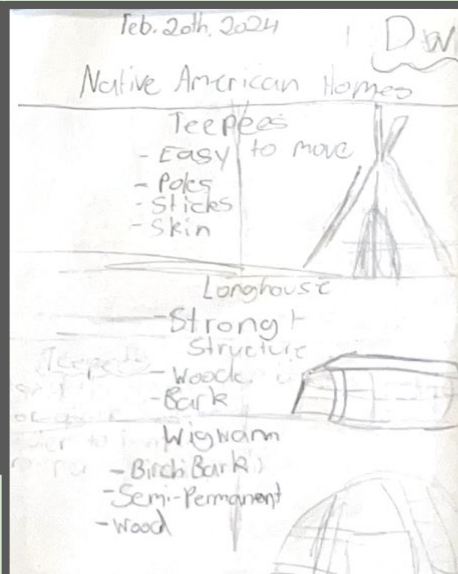 Feb. 20th, 2024
Native American Homes
Teepees
- Easy to move
- Poles
- Sticks
- Skin
Longhouse
- Strong
Structure
- Wood
- Bark
Wigwam
- Birch Bark
- Semi-Permanent
- Wood